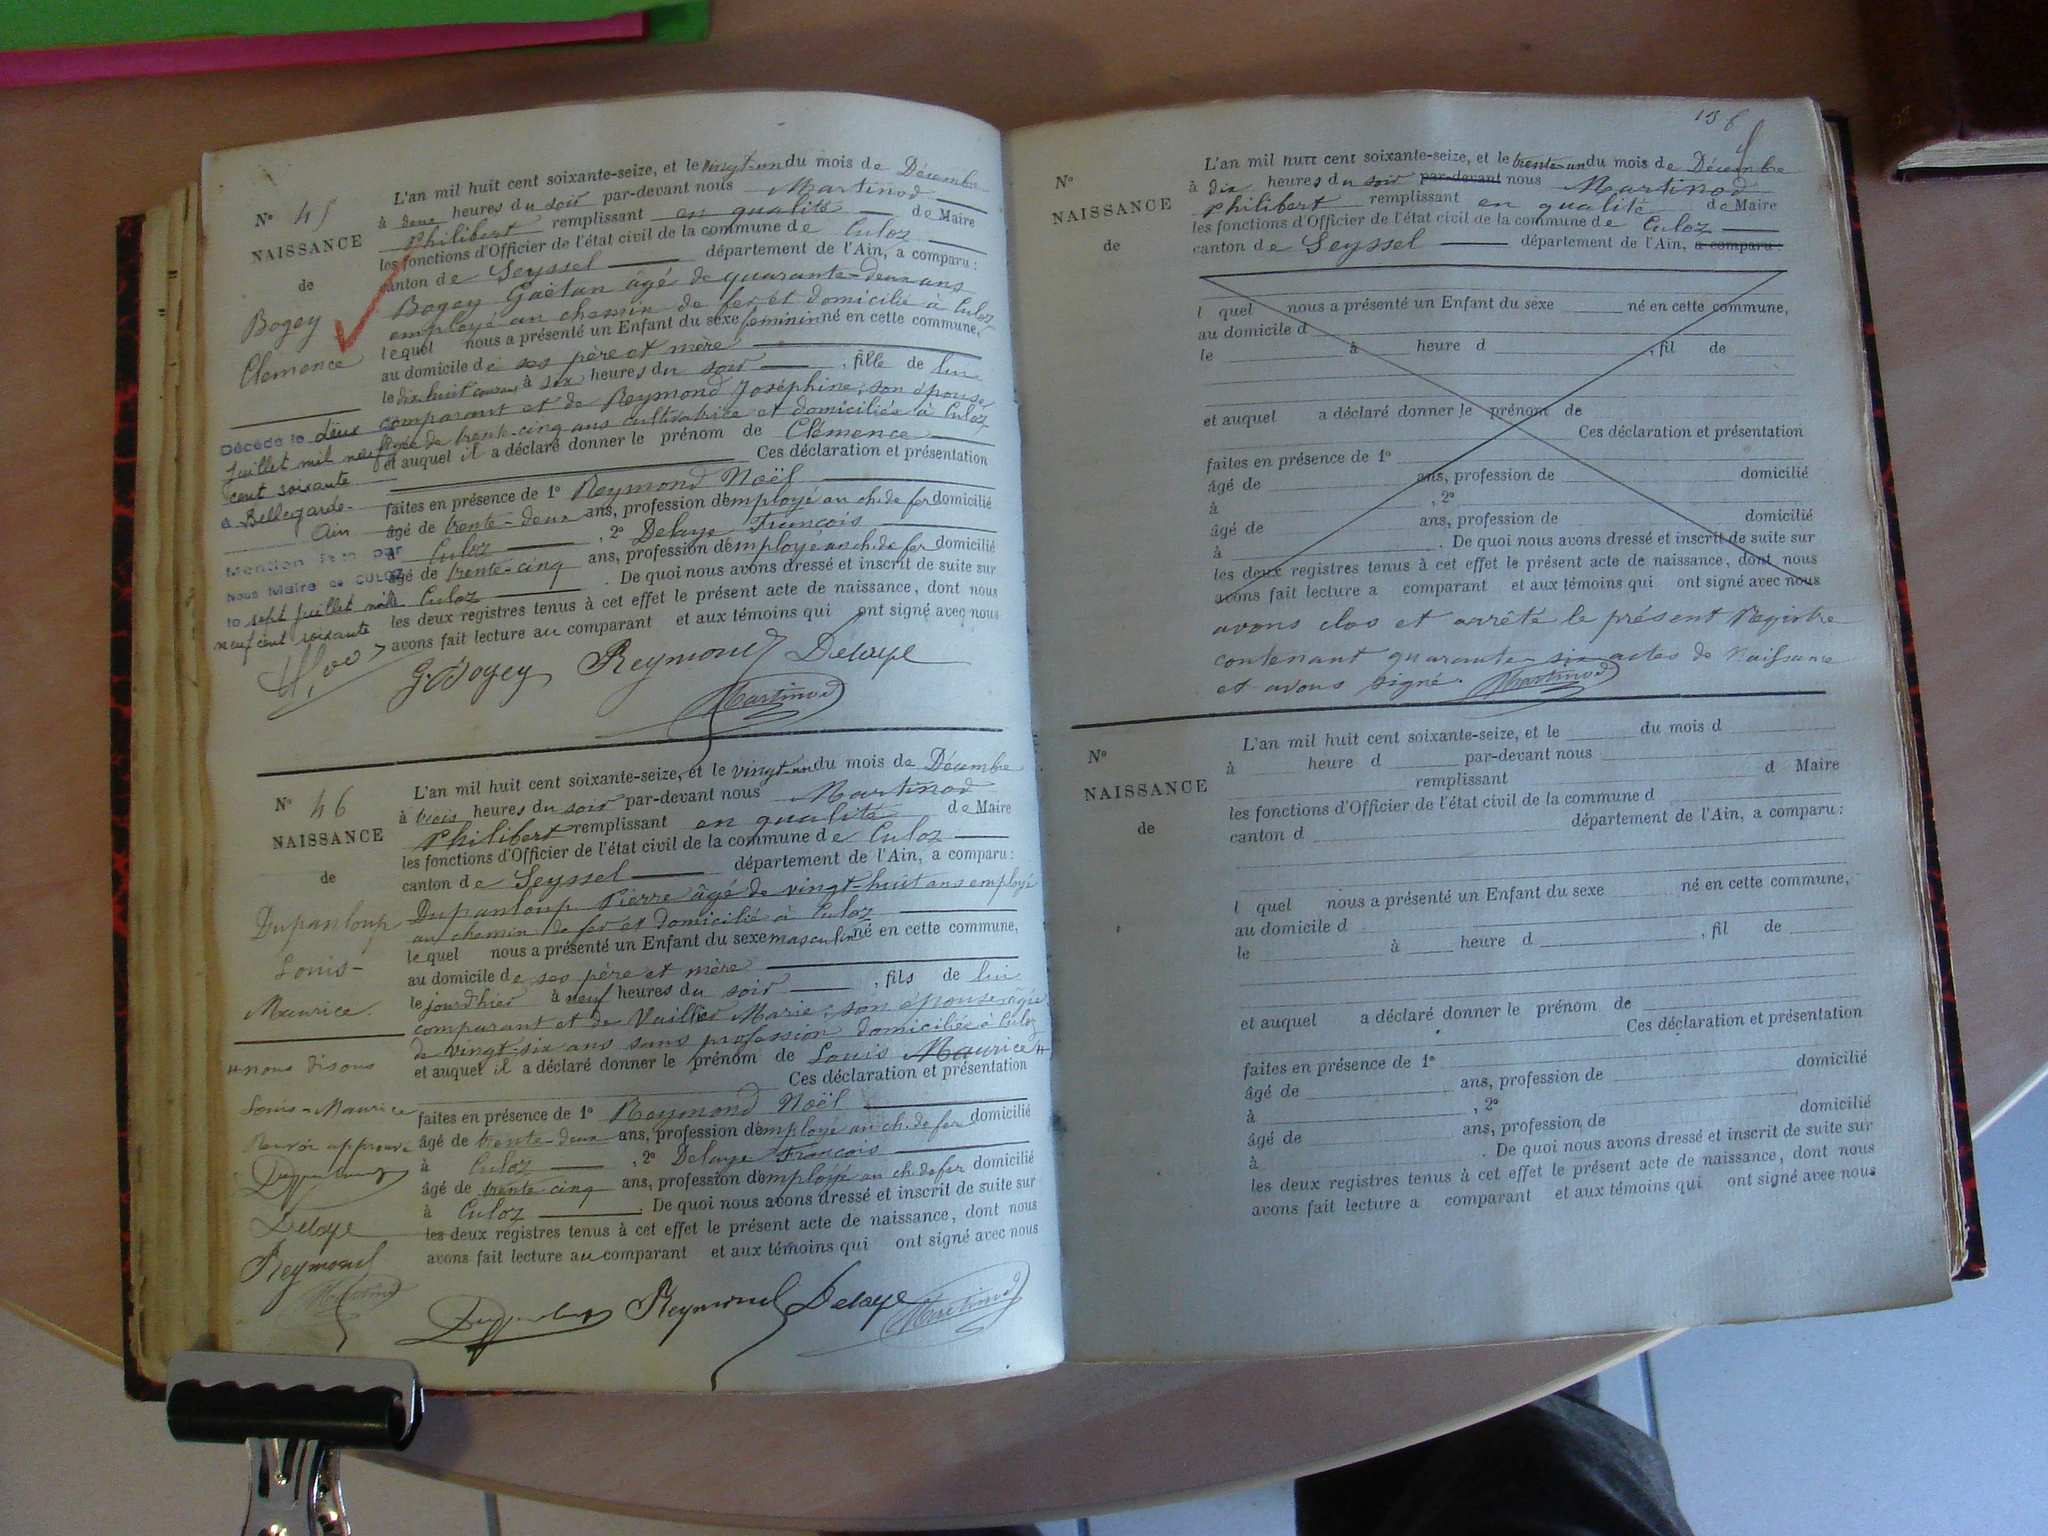 N° 45
NAISSANCE
de
Bogey
Clemence
L'an mil huit cent soixante-seize, et le vingt-un du mois de Décembre
à deux heures du soir par-devant nous Martinod
Philibert remplissant en qualité de Maire
les fonctions d'Officier de l'état civil de la commune de Culoz
canton de Seyssel département de l'Ain, a comparu :
Bogey Gaëtan âgé de quarante-deux ans
employé au chemin de fer et domicilié à Culoz
lequel nous a présenté un Enfant du sexe féminin né en cette commune,
au domicile de ses père et mère
le dix huit courant à six heures du soir , fille de lui
comparant et de Reymond Joséphine, son épouse,
âgée de trente-cinq ans cultivatrice et domiciliés à Culoz
et auquel il a déclaré donner le prénom de Clémence
Ces déclaration et présentation
faites en présence de 1° Reymond Noël
âgé de trente-deux ans, profession d'employé au ch. de fer domicilié
à Culoz , 2° Delaye François
âgé de trente-cinq ans, profession d'employé au ch. de fer domicilié
à Culoz . De quoi nous avons dressé et inscrit de suite sur
les deux registres tenus à cet effet le présent acte de naissance, dont nous
avons fait lecture au comparant et aux témoins qui ont signé avec nous
G. Bogey Reymond Delaye
Martinod
Décédé le deux
Juillet mil neuf
cent soixante
à Bellegarde
Ain
Mention faite par
Nous Maire de CULOZ
le sept juillet mille
neuf cent soixante
N° 46
NAISSANCE
de
Dupanloup
Louis-
Maurice.
L'an mil huit cent soixante-seize, et le vingt-un du mois de Décembre
à trois heures du soir par-devant nous Martinod
Philibert remplissant en qualité de Maire
les fonctions d'Officier de l'état civil de la commune de Culoz
canton de Seyssel département de l'Ain, a comparu :
Dupanloup Pierre âgé de vingt-huit ans employé
au chemin de fer et domicilié à Culoz
lequel nous a présenté un Enfant du sexe masculin né en cette commune,
au domicile de ses père et mère
le jour d'hier à neuf heures du soir , fils de lui
comparant et de Marie, son épouse âgée
de vingt-six ans sans profession domiciliés à Culoz
et auquel il a déclaré donner le prénom de Louis Maurice #
Ces déclaration et présentation
faites en présence de 1° Reymond Noël
âgé de trente-deux ans, profession d'employé au ch. de fer domicilié
à Culoz , 2° Delaye François
âgé de trente-cinq ans, profession d'employé au ch. de fer domicilié
à Culoz . De quoi nous avons dressé et inscrit de suite sur
les deux registres tenus à cet effet le présent acte de naissance, dont nous
avons fait lecture au comparant et aux témoins qui ont signé avec nous
# nous disons
Louis-Maurice
Renvoi approuvé
Delaye
Reymond
Martinod
Reymond Delaye Martinod
N°
NAISSANCE
de
L'an mil huit cent soixante-seize, et le trente-un du mois de Décembre
à dix heures du soir par-devant nous Martinod
Philibert remplissant en qualité de Maire
les fonctions d'Officier de l'état civil de la commune de Culoz
canton de Seyssel département de l'Ain, a comparu :
l quel nous a présenté un Enfant du sexe né en cette commune,
au domicile d
le à heure d , fil de
et auquel a déclaré donner le prénom de
Ces déclaration et présentation
faites en présence de 1°
âgé de ans, profession de domicilié
à , 2°
âgé de ans, profession de domicilié
à . De quoi nous avons dressé et inscrit de suite sur
les deux registres tenus à cet effet le présent acte de naissance, dont nous
avons fait lecture a comparant et aux témoins qui ont signé avec nous
avons clos et arrêté le présent Registre
contenant quarante-six actes de Naissance
et avons signé. Martinod
N°
NAISSANCE
de
L'an mil huit cent soixante-seize, et le du mois d
à heure d par-devant nous
remplissant d Maire
les fonctions d'Officier de l'état civil de la commune d
canton d département de l'Ain, a comparu :
l quel nous a présenté un Enfant du sexe né en cette commune,
au domicile d
le à heure d , fil de
et auquel a déclaré donner le prénom de
Ces déclaration et présentation
faites en présence de 1°
âgé de ans, profession de domicilié
à , 2°
âgé de ans, profession de domicilié
à . De quoi nous avons dressé et inscrit de suite sur
les deux registres tenus à cet effet le présent acte de naissance, dont nous
avons fait lecture a comparant et aux témoins qui ont signé avec nous